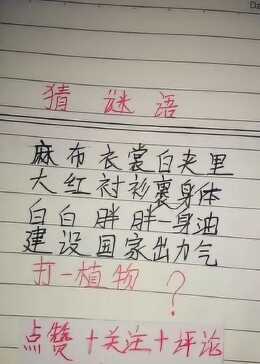 Da
猜谜语
麻布衣裳白夹里
大红衬衫裹身体
白白胖胖一身油
建设国家出力气
打一植物?
点赞+关注+评论